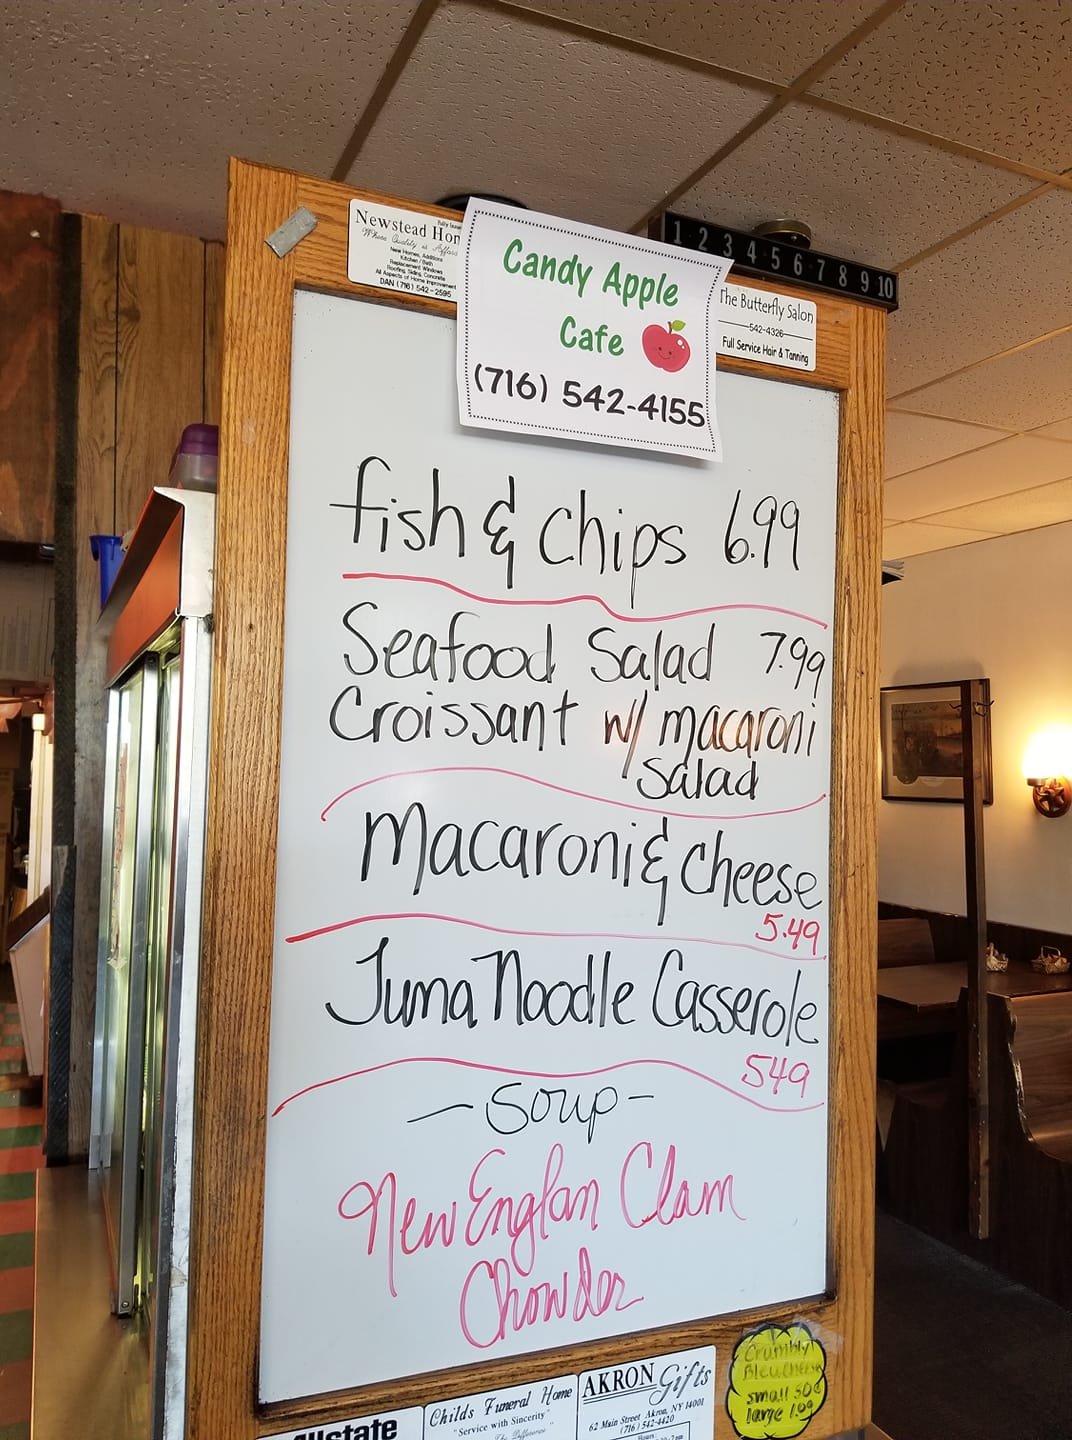 Newstead Hom
Where Quality is Afford
New Homes, Additions
Kitchen / Bath
Replacement Windows
Roofing, Siding, Concrete
All Aspects of Home Improvement
DAN (716) 542-2595
Candy Apple
Cafe
(716) 542-4155
1 2 3 4 5 6 7 8 9 10
The Butterfly Salon
542-4326
Full Service Hair & Tanning
fish & Chips 6.99
Seafood Salad 7.99
Croissant w/ macaroni
Salad
Macaroni & Cheese
5.49
Tuna Noodle Casserole
549
- Soup -
New Englan Clam
Chowder
Allstate
Childs Funeral Home
"Service with Sincerity"
The Difference
AKRON Gifts
62 Main Street Akron, NY 14001
(716) 542-4420
Hours:
Crumbly
Bleu Cheese
small 50¢
large 1.00